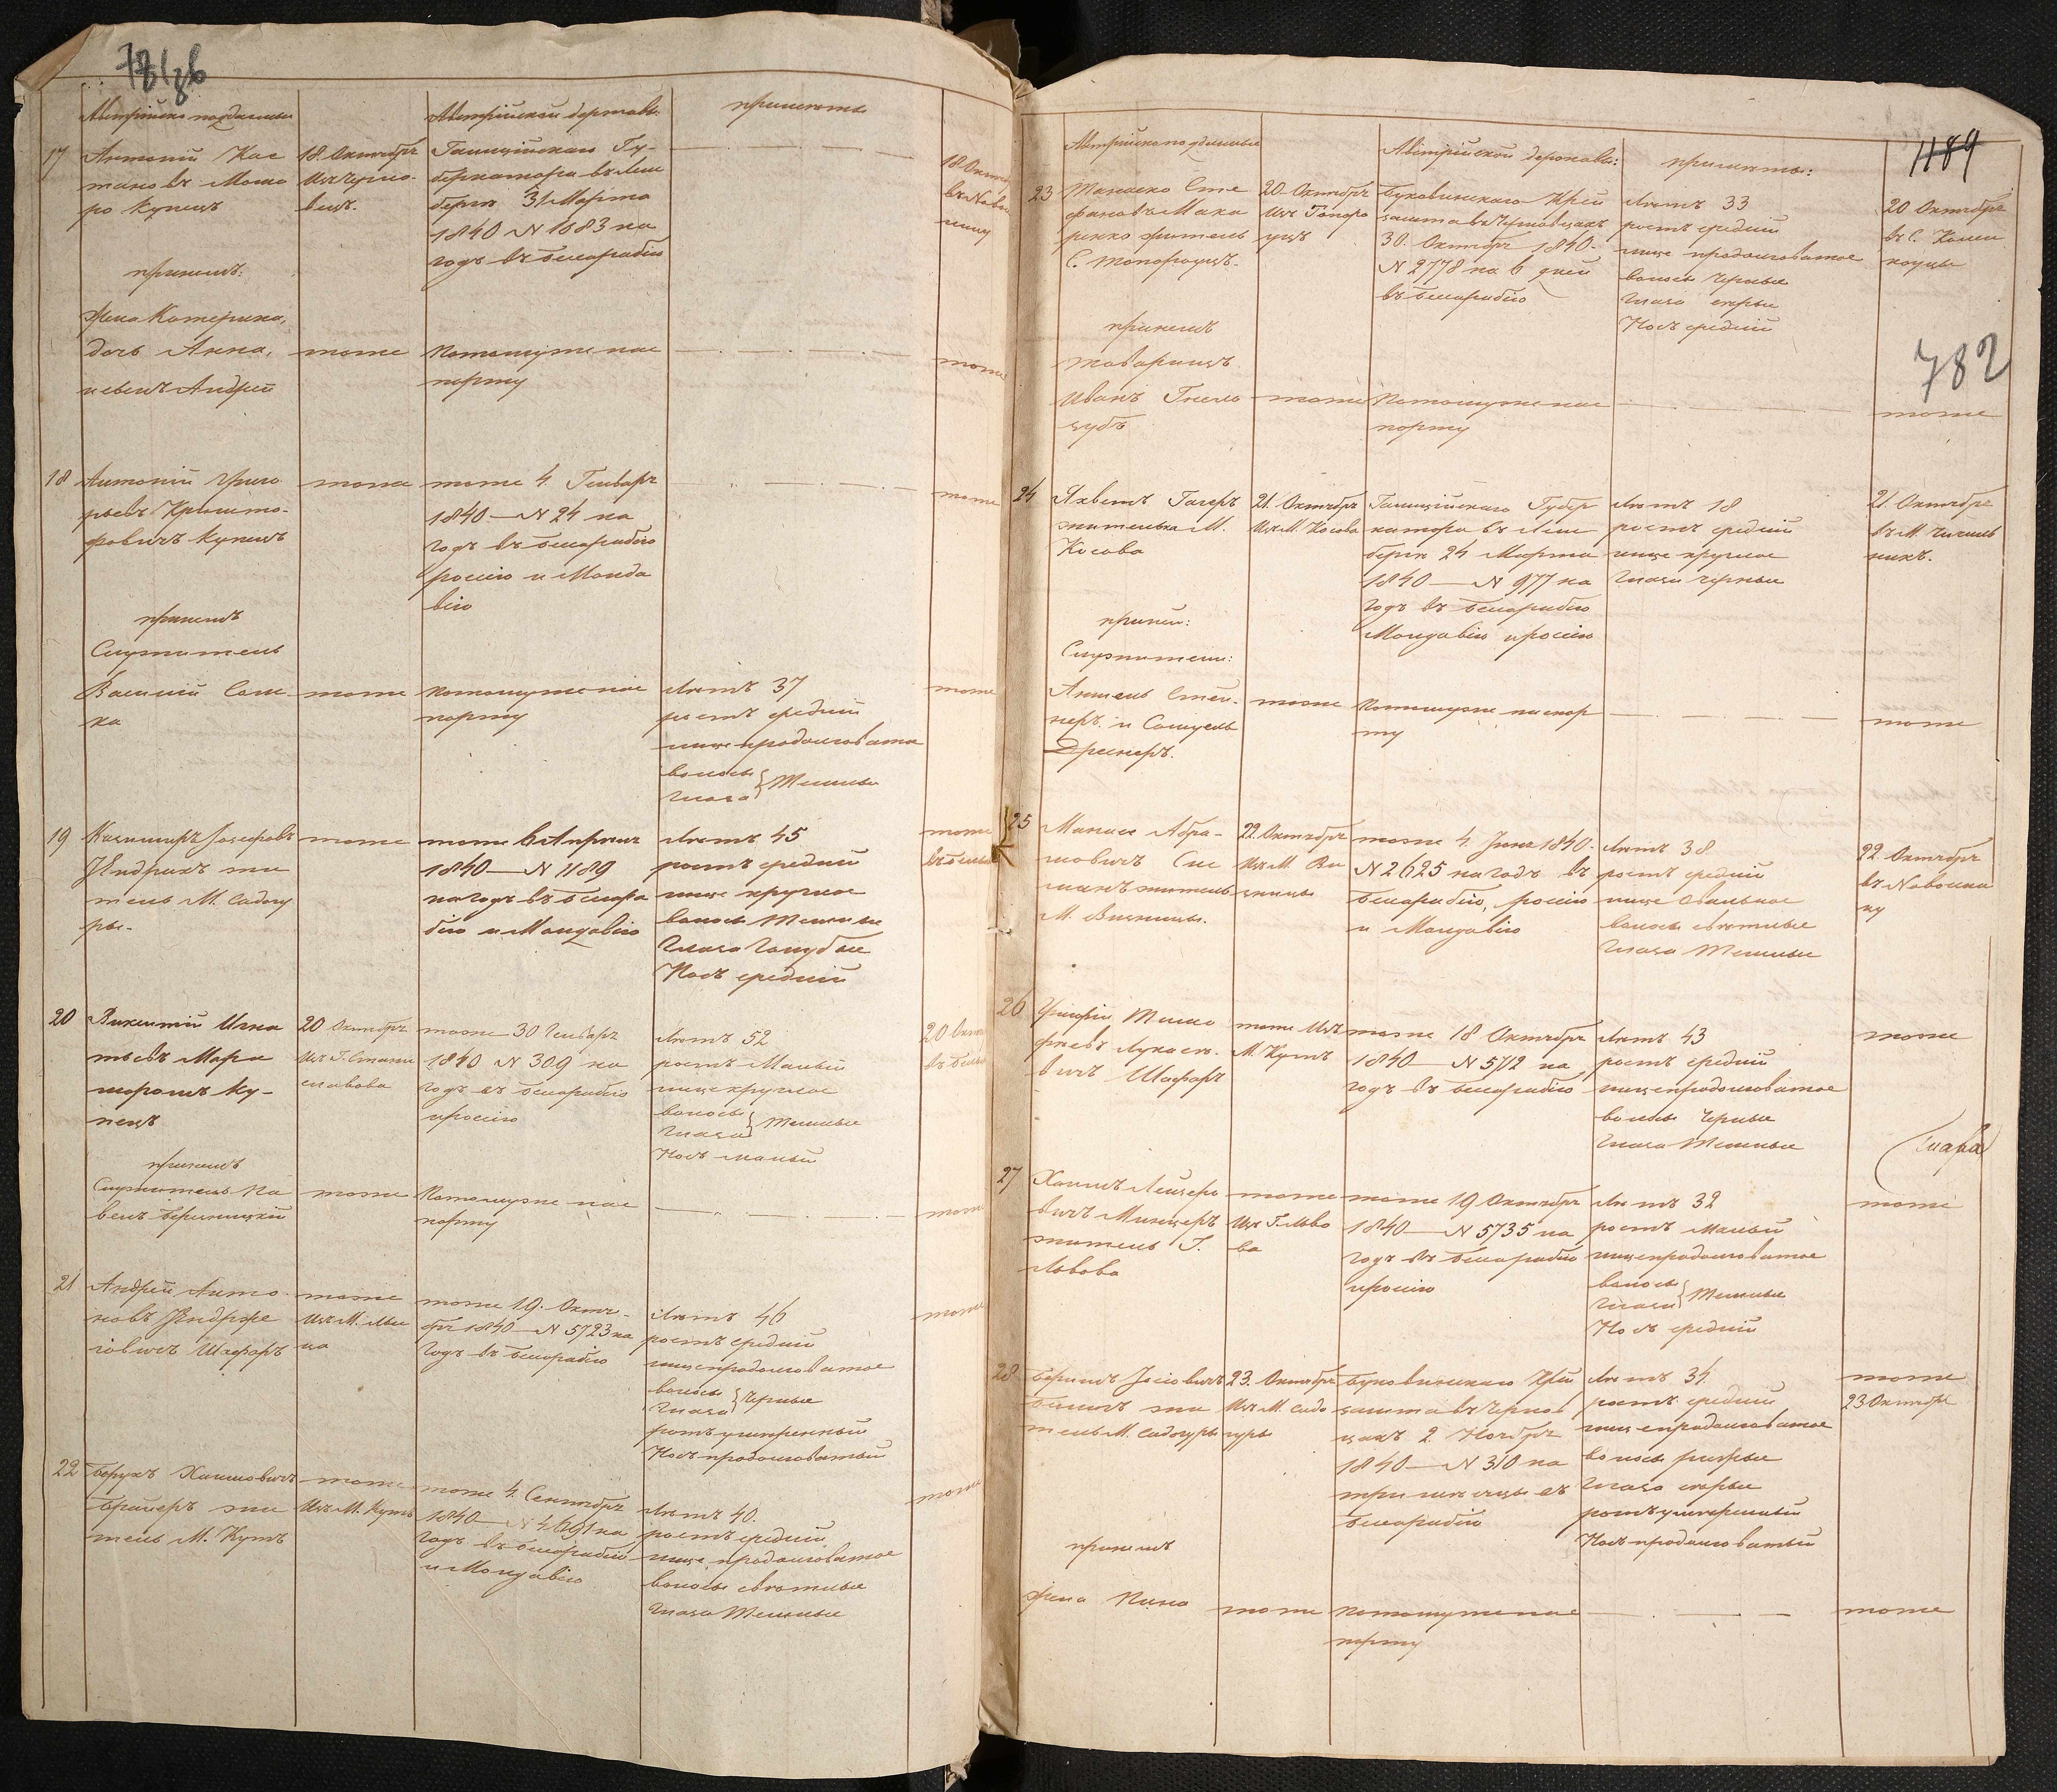 781 зв
Австрійско подданные
Австрійской державы:
приметы
17
Антоній Кас
тановъ Моше
ро купецъ
18 Октября
Изъ Черно-
вецъ.
Галиційскаго Гу-
бернатора въ Лем
берги 31 Марта
1840 N 1683 на
годъ въ Бесарабію
18 Октяб
въНово
лицу
при немъ:
жена Катерина,
дочь Анна,
и сынъ Андрей
тоже
По томуже пас
порту
тоже
18
Антоній Григо
рьевъ Криште-
фовичъ купецъ
тоже
тоже 4. Генваря
1840 — N 24 на
годъ въ Бесарабію
россію и Молда
вію
тоже
при немъ
Служитель
Василій Сам-
ка
тоже
по томуже пас
порту
Лѣтъ 37
ростъ средній
лице продолговато
волосы
глаза } Темные
тоже
19
Казимиръ Јозефовъ
Јендрихъ жи
тель М. Садагу
ры.
тоже
тоже 6 Апреля
1840 — N 1189
на годъ въ Бесара
бію и Молдавію
Лѣтъ 45
ростъ средній
лице круглое
волосы Темные
Глаза Голубые
Носъ средній
тоже
20
Викентій Игна
тьевъ Мара
шоромъ Ку-
пецъ
20 Октября
Изъ Г. Стани
славова
тоже 30 Генваря
1840 N 309 на
годъ въ Бесарабію
и россію
Лѣтъ 52
ростъ Малый
лице круглое
волосы
глаза } Темные
Носъ малый
20 Октяб
при немъ
Служитель Па
велъ Берницкій
тоже
По томуже пас
порту
тоже
21
Андрей Анто-
новъ Јендрже
іовичъ Шафаръ
тоже
тоже 19. Октя-
бря 1840 — N 5723 на
годъ въ Бесарабію
Лѣтъ 46
ростъ средній
лице продолговатое
волосы
глаза } Черные
ротъ умеренный
Носъ продолговатый
тоже
22
Борухъ Хаимовичъ
Брайеръ жи
тель М. Кутъ
тоже
Изъ М. Кутъ
тоже 4. Сентября
1840 — N 4691 на
годъ въ Бесарабію
и Молдавію
Лѣтъ 40.
ростъ средній
лице продолговатое
волосы светлые
глаза Темные
тоже
1189
782
Австрійскоподданные
Австрійской державы:
приметы:
23
Танаско Сте
фановъ Мака
ренко житель
С. Топороуцъ.
20 Октября
Изъ Топоро
уцъ
Буковинскаго Крей
замта въ Черновцахъ
30. Октября 1840.
N 2778 на 6 дней
въ Бесарабію
Лѣтъ 33
ростъ средній
лице продолговатое
волосы Черные
глаза серые
Носъ средній
20 Октября
въ С.
при немъ
товарищъ
Иванъ Гнило
зубъ
тоже
По томуже пас
порту
тоже
24
Яхветъ Гагеръ
жителька М.
Косова
21. Октября
Изъ М. Косова
Галиційскаго Губер
натора въ Лем
берги 24 Марта
1840 — N 977 на
годъ въ Бесарабію
Молдавію и россію
Лѣтъ 18
ростъ средній
лице круглое
глаза черные
21. Октября
въ М. Чичель
никъ.
при ней:
Служители:
Аншель Стей-
неръ и Самуель
Дремеръ.
тоже
По томуже паспор
ту
тоже
25
Манасе Абра-
мовичъ Сис
манъ житель
М. Вижницы.
22. Октября
Изъ М. Ви
жницы
тоже 4. Јуня 1840.
N 2625 на годъ въ
Бесарабію, россію
и Молдавію
Лѣтъ 38
ростъ средній
лице Овальное
волосы светлые
глаза Темные
22 Октября
въ Новосели
цу
26
Григорій Тимо
феевъ Лукасе-
вичъ Шафаръ
тоже Изъ
М. Кутъ
тоже 18 Октября
1840 — N 5712 на
годъ въ Бесарабію
Лѣтъ 43
ростъ средній
лице продолговатое
волосы Черные
глаза Темные
тоже
27
Хаимъ Лейзеро
вичъ Минцеръ
житель Г.
Львова
тоже
Изъ Г. Льво
ва
тоже 19 Октября
1840 — N 5735 на
годъ въ Бесарабію
и россію
Лѣтъ 32
ростъ малый
лице продолговатое
волосы
глаза } Темные
Носъ средній
тоже
28
Беришъ Јосіовичъ
жи
тель М. Садагуры
23. Октября
Изъ М. Сада
гуры
Буковинскаго Крей
замта въ Чернов
цахъ 2. Ноября
1840 — N 310 на
три месяцы въ
Бесарабію
Лѣтъ 34
ростъ средній
лице продолговатое
волосы рыжые
глаза серые
ротъ умеренный
Носъ продолговатый
тоже
23 Октября
при немъ
жена
тоже
по томуже пас
порту
тоже